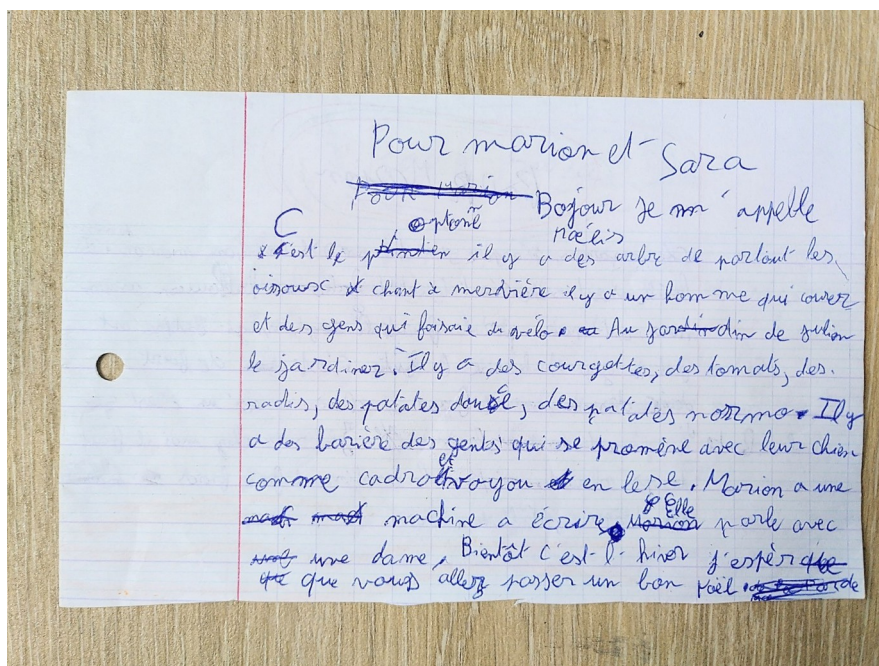 Pour marion et Sara
Bojour je m'appelle
Maélis
C'est le optonê il y a des arbre de partout les
oissoux chant à merdvière il y a un homme qui courer
et des gens qui faisaie du vélo. Au jardin de julien
le jardiner. Il y a des courgettes, des tomats, des
radis, des patates doucê, des patates normo. Il y
a des barière des gents qui se promène avec leur chien
comme cadro et voyou en lese. Marion a une
machine a écrire. Elle parle avec
une dame. Bientôt c'est l'hiver j'espèr
que vous allez passer un bon Noël